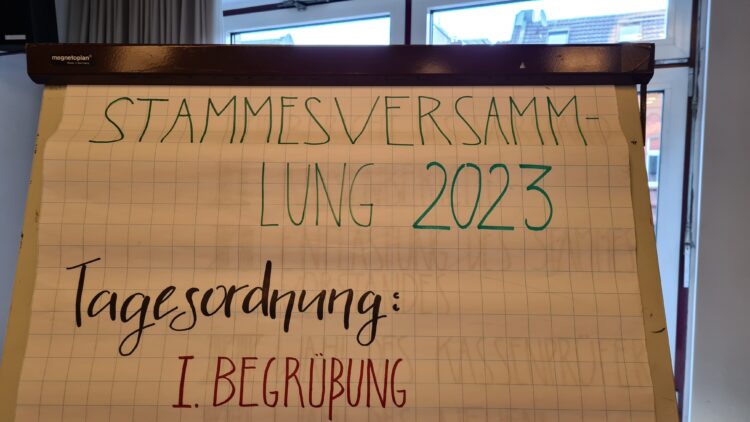 magnetoplan
STAMMESVERSAMM-
LUNG 2023
Tagesordnung:
I. BEGRÜßUNG
KASSENPRÜFER